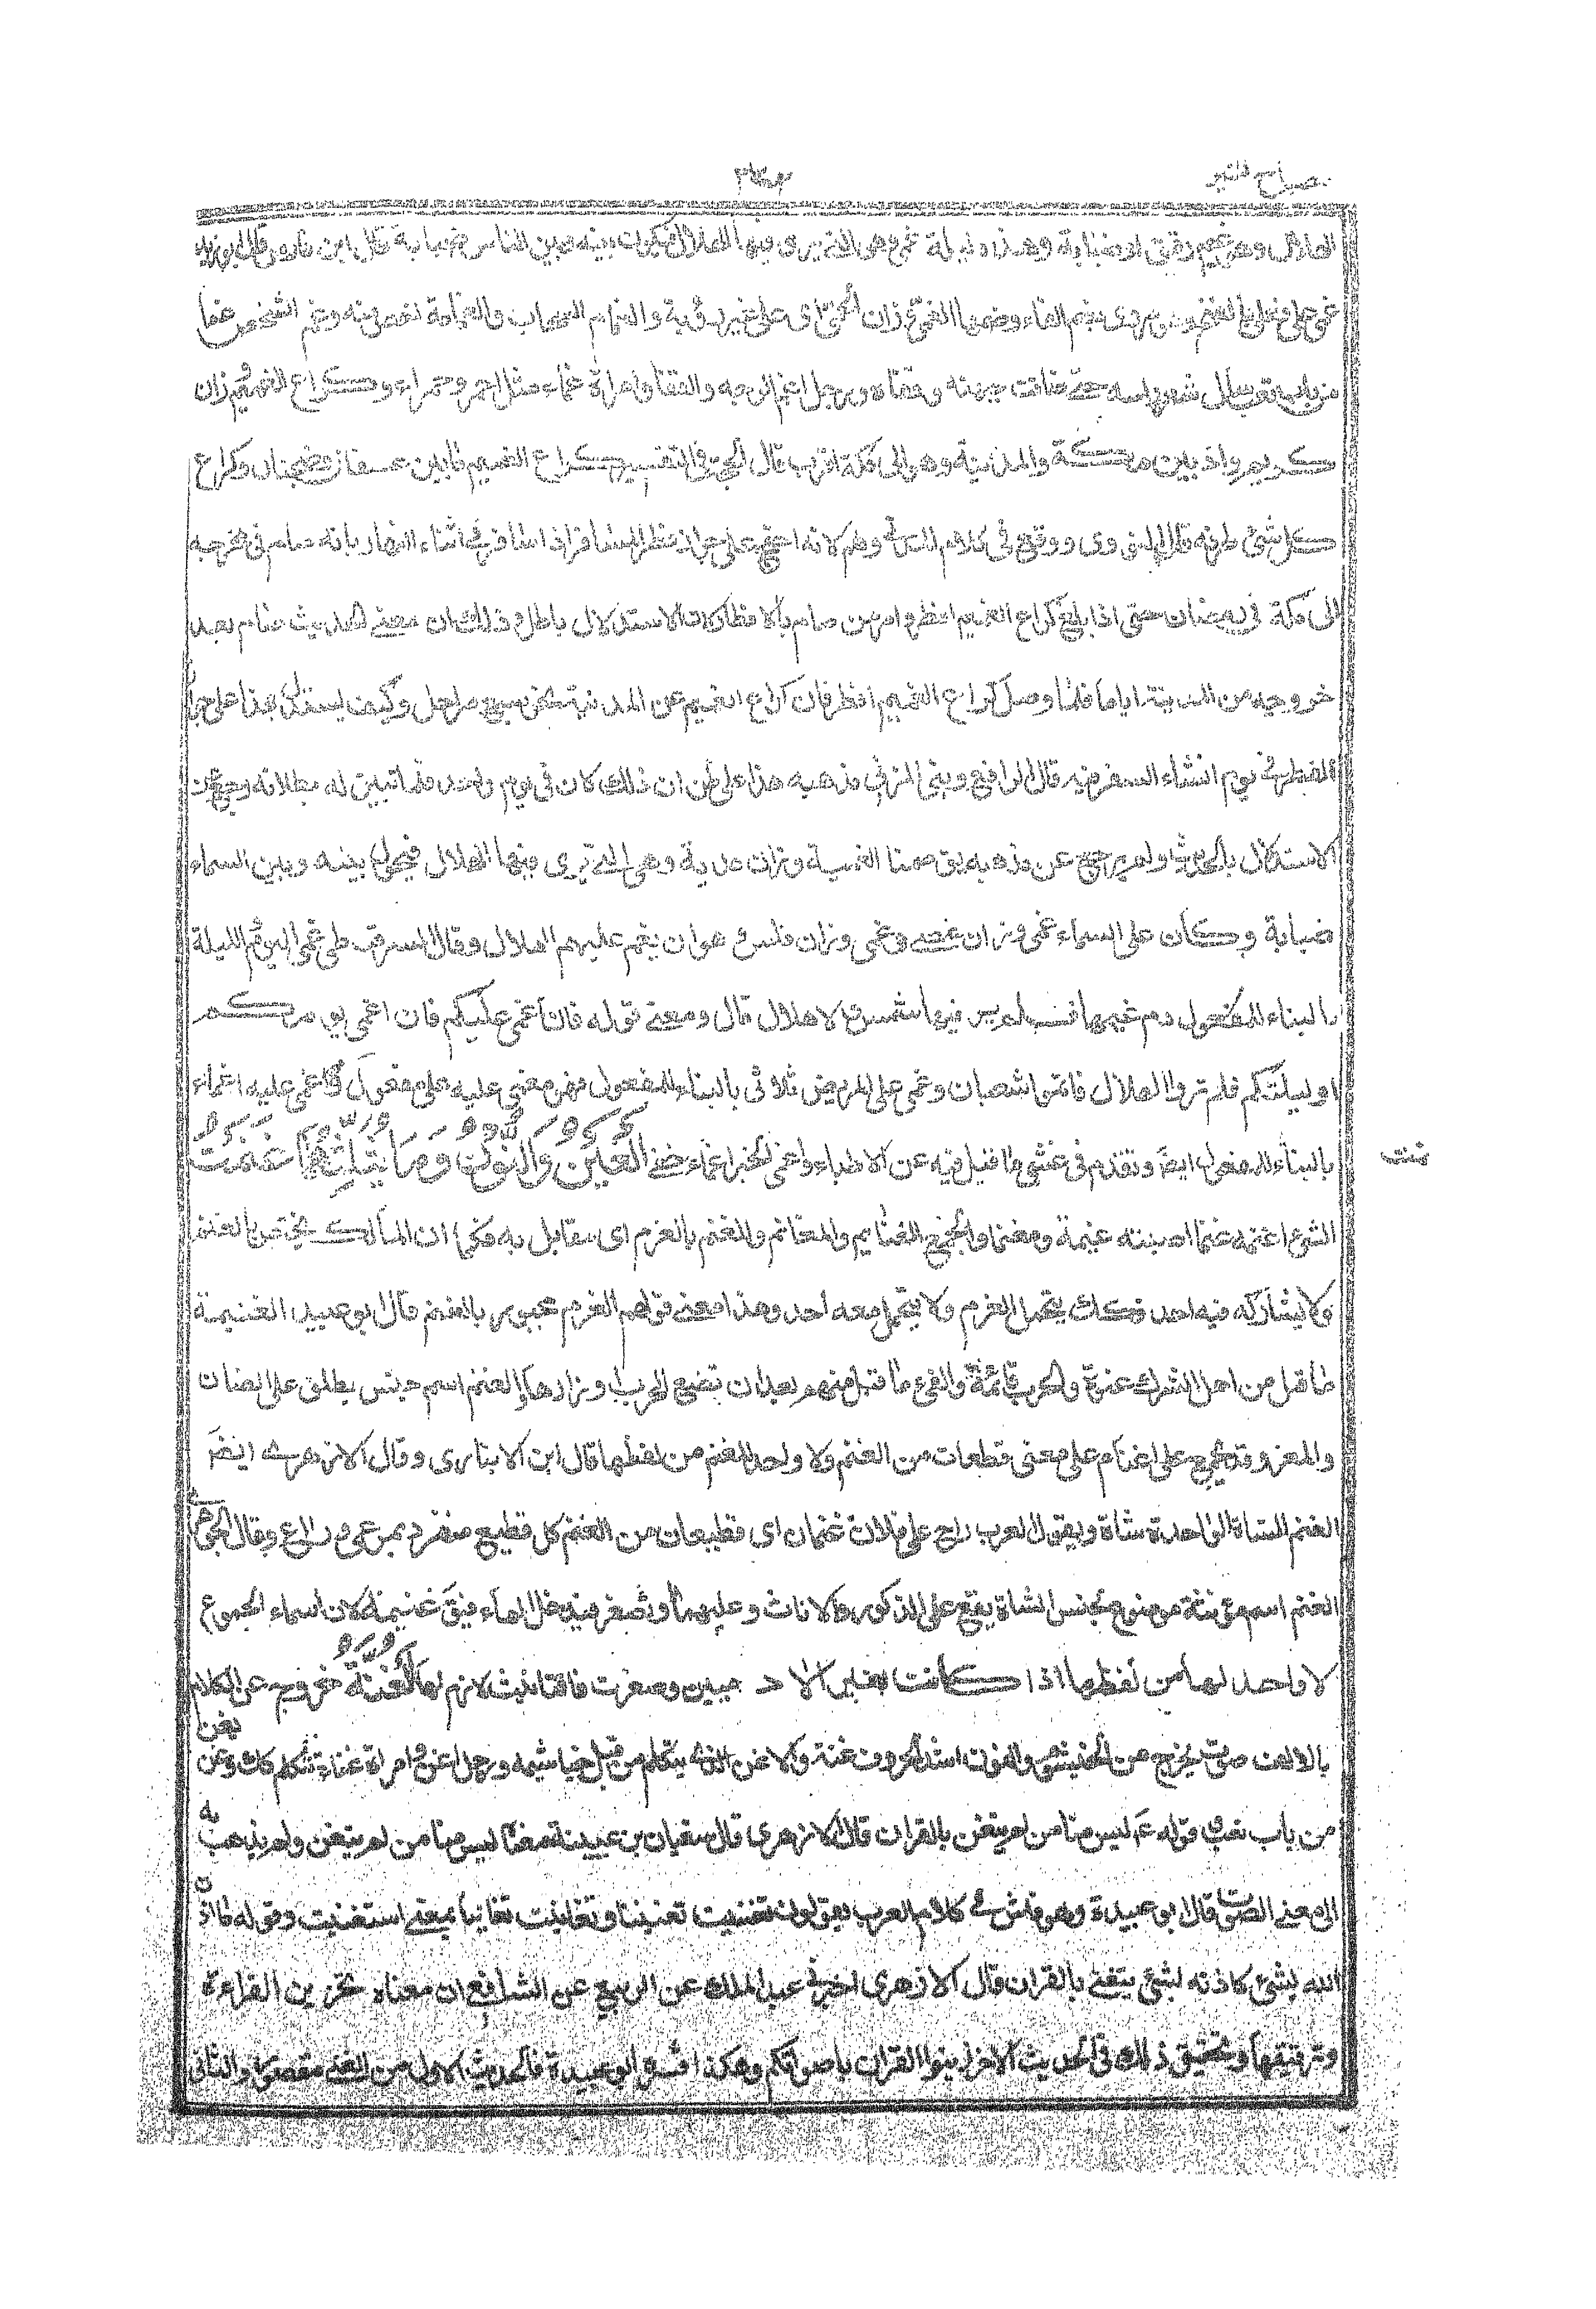 مصباح منير
الهلال وهو غيم رقيق او ضبابة وهذه ليلة غمى هو الذى يرى فيها الهلال فيكون بينه وبين الناس ضبابة قال ابن فارس قال ابو زيد
غمى على فعلى بالفتح بضم الفاء وضمها الغمى وزان اى على غير رؤية والغمام السحاب والغمامة اخص منه وغم الشخص غما
من باب تعب سال شعر راسه حتى ضاقت جبهته وقفاه ورجل اغم الوجه والقفا وامراة غماء مثل احمر وحمراء وكراع الغميم وزان
كريم واد بين مكة والمدينة وهو الى مكة اقرب قال فى التقسيم كراع الغميم ما بين عسفان وضجنان وكراع
كل شئ طرفه قال النووى ووقع فى كلام وهم لانه احتج على جواز فطر المسافر اذا سافر فى اثناء النهار بانه صام فى مخرجه
الى مكة فى رمضان حتى اذا بلغ كراع الغميم افطر وامر من صام بالافطار كان الاستدلال باطل وذلك ان معنى الحديث صام بعد
خروجه من المدينة اياما فلما وصل كراع الغميم افطر فان كراع الغميم عن المدينة نحو سبع مراحل وكيف يستدل بهذا على
الفطر فى يوم انشاء السفر فيه قال الرافعى وبنى المزنى مذهبه هذا على ظن ان ذلك كان فى يوم واحد فلما تبين له بطلانه رجع عن
الاستدلال بالحديث ولم يرجع عن مذهبه يق صمنا الغمية وزان مدية وهى التى يرى فيها الهلال فيحول بينه وبين السماء
ضبابة وكان على السماء غمى وزان عصى وغمى وزان فلس وهو ان يغم عليهم الهلال وقال السرقسطى غمى اليوم والليلة
بالبناء للمفعول دام غيمها فلم ير فيها شمس ولا هلال قال ومعنى قوله فان اغمى عليكم فان اغمى يومكم
او ليلتكم فلم تروا الهلال فاتموا شعبان وغمى على المريض ثلاثى بالبناء للمفعول فهو مغمى عليه على مفعول واغمى عليه اغماء
بالبناء للمفعول ايضا وتقدم فى غشى ما قيل فيه عن الاطباء واغمى الخبر اغماء خفى الغين والنون وما يثلثهما غنمت
الشئ اغنمه غنما اصبته غنيمة ومغنما والجمع الغنائم والمغانم والغنم بالغرم اى مقابل به فكما ان المالك يختص بالغنم
ولا يشاركه فيه احد فكذلك يتحمل الغرم ولا يتحمل معه احد وهذا معنى قولهم الغرم مجبور بالغنم قال ابو عبيد الغنيمة
ما نيل من اهل الشرك عنوة والحرب قائمة والفئ ما نيل منهم بعد ان تضع الحرب اوزارها والغنم اسم جنس يطلق على الضان
والمعز وقد يجمع على اغنام على معنى قطعات من الغنم ولا واحد للغنم من لفظها قال ابن الانبارى وقال الازهرى ايضا
الغنم الشاة الواحدة شاة ويقول العرب راح على فلان غنمان اى قطيعان من الغنم كل قطيع منفرد بمرعى وراع وقال الجوهرى
الغنم اسم مؤنثة موضوع لجنس الشاة يقع على الذكور والاناث وعليهما ويصغر فيدخل الهاء فيق غنيمة لان اسماء الجموع
لا واحد لها من لفظها اذا كانت لغير الاد ميين وصغرت فالتانيث لازم لها الغنة خروج عن الكلام
بالانف صوت يخرج من الخيشوم والنون اشد الحروف غنة والاغن الذى يتكلم من قبل خياشيمه ورجل اغن وامراة غناء يتكلم كك وغن يغن
من باب تعب قوله ع ليس منا من لم يتغن بالقران قال الازهرى قال سفيان بن عيينة معناه ليس منا من لم يتغن ولم يذهب به
الى معنى الصوت قال ابو عبيدة وهو فاش فى كلام العرب يقولون تغنيت تغنيا وتغانيت تغانيا بمعنى استغنيت وقوله ما اذن
الله لشئ كاذنه لشئ يتغنى بالقران قال الازهرى اخبرنى عبد الملك عن الربيع عن الشافعى ان معناه تحزين القراءة
وترقيقها وتحقيق ذلك فى الحديث الاخر زينوا القران باصواتكم وهكذا فسره ابو عبيدة فالحديث الاول من الغنى مقصورا والثانى